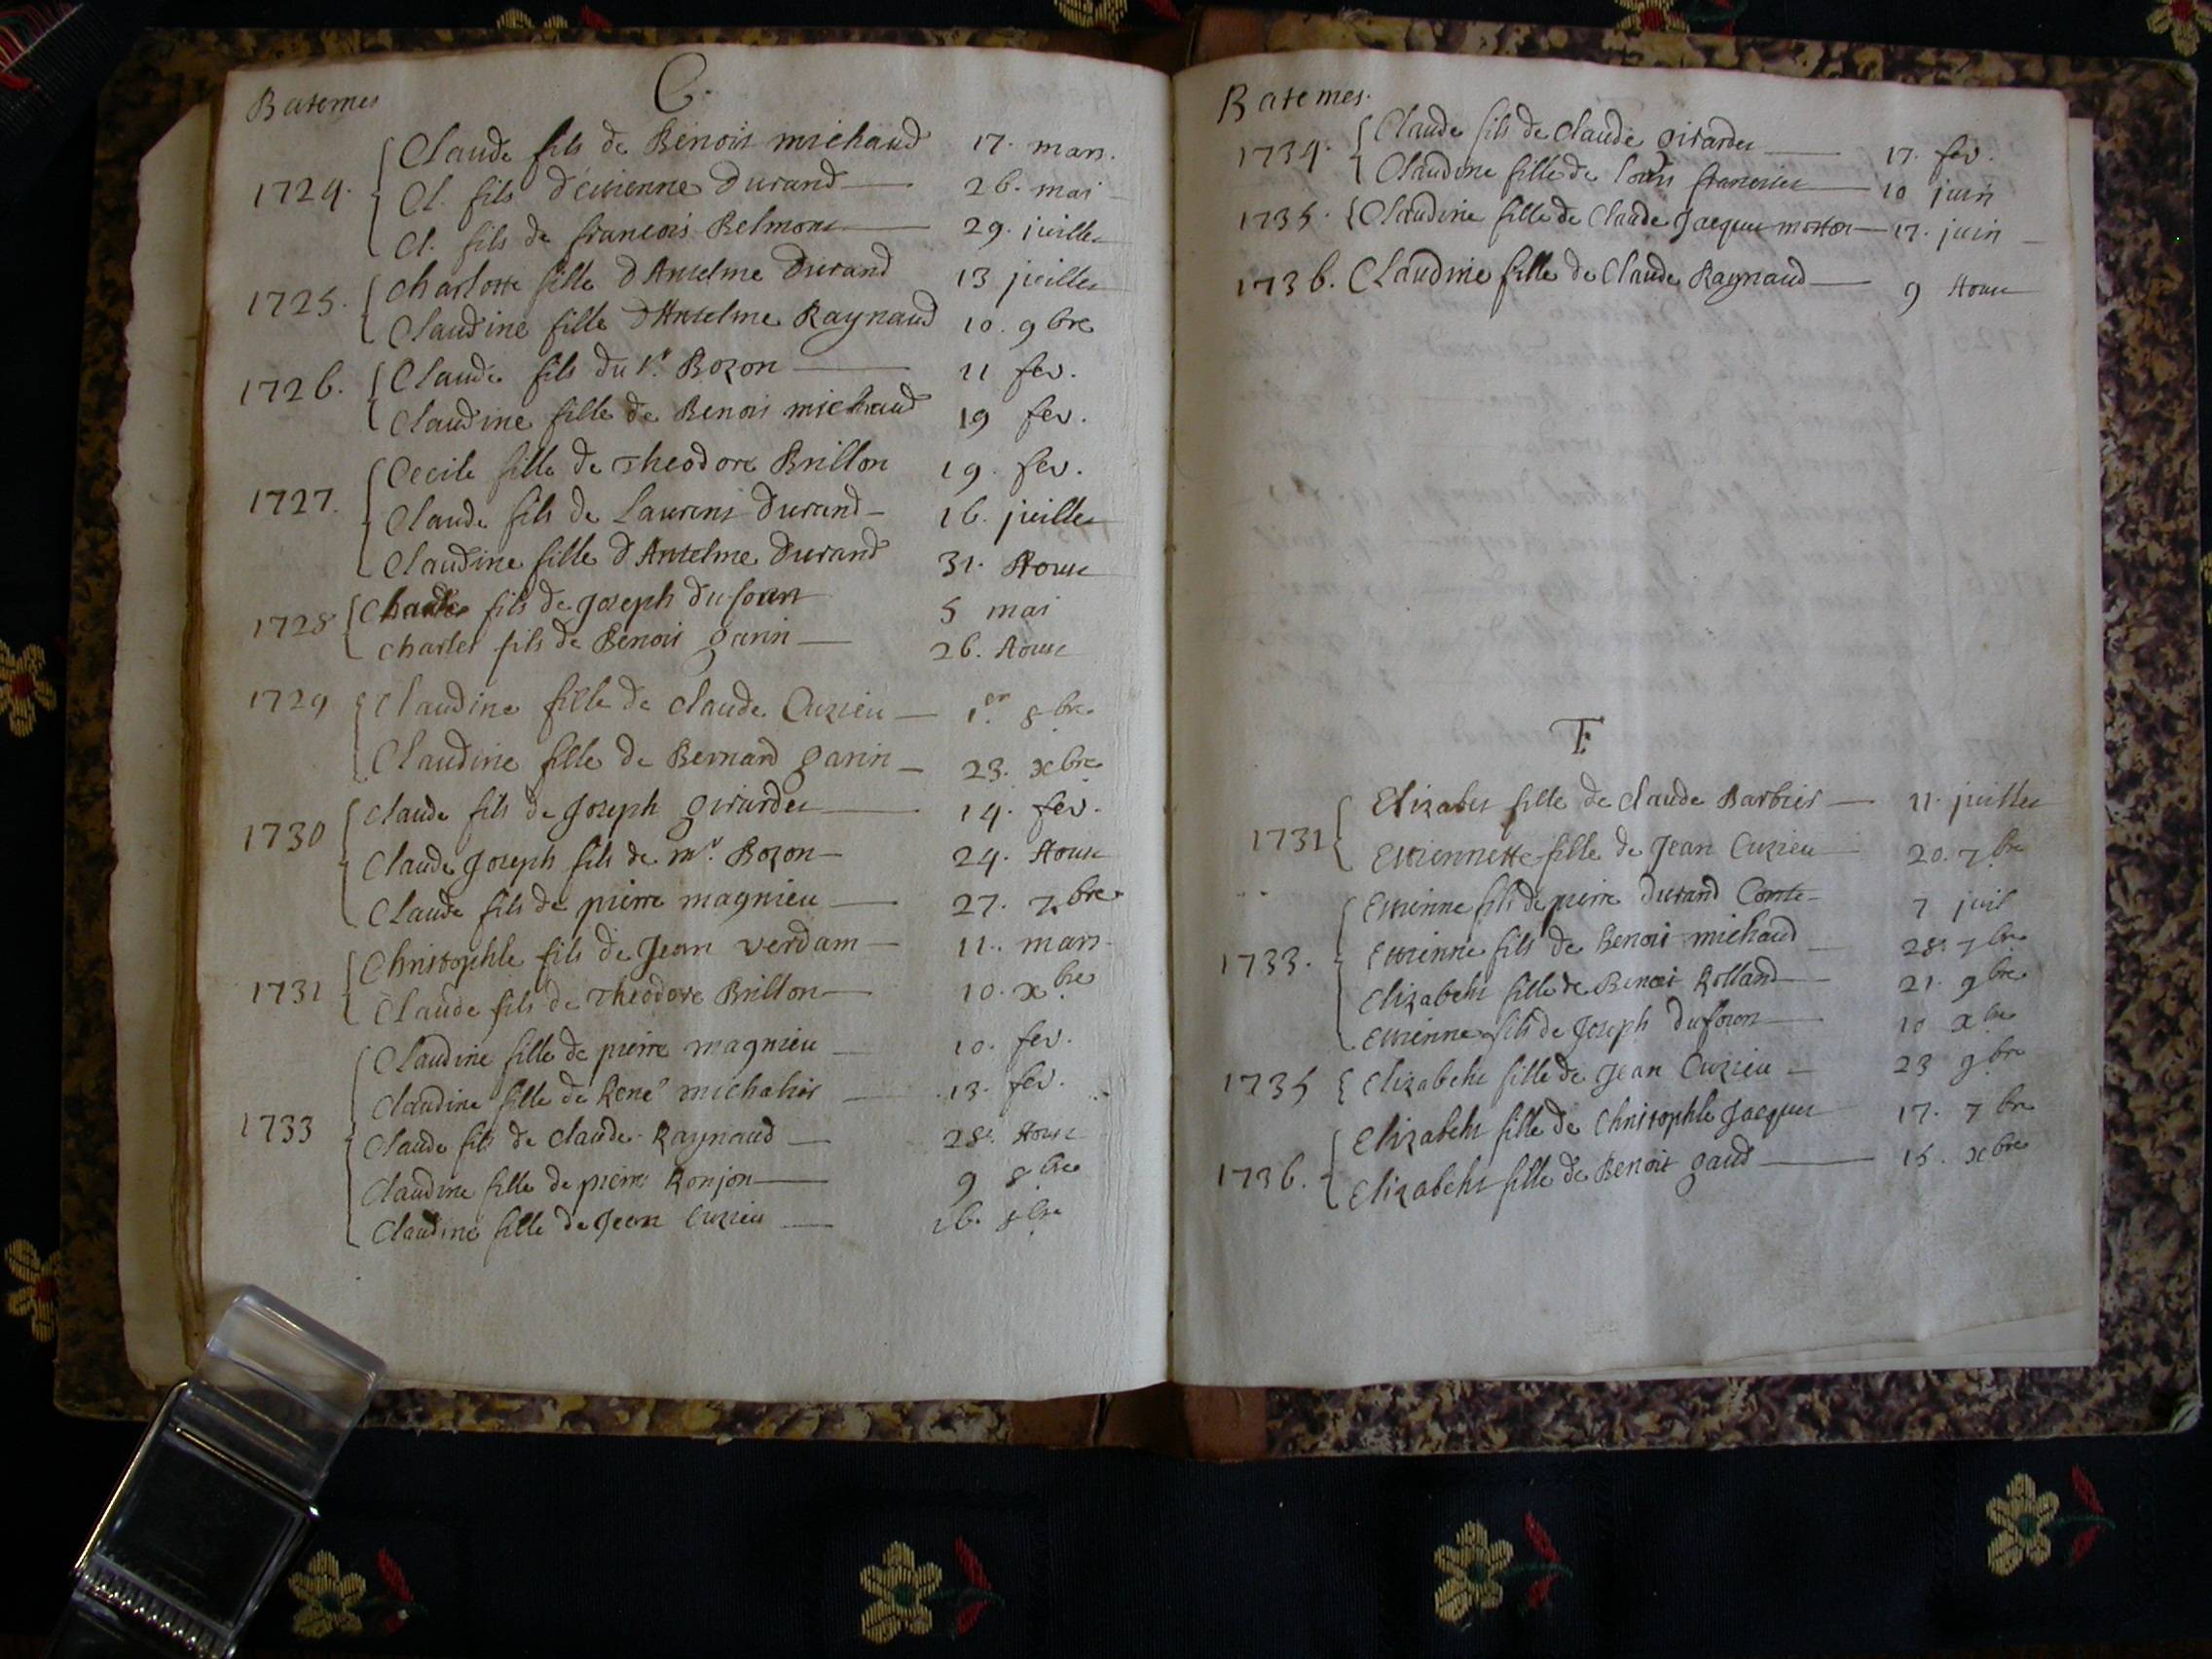 Batemes
C.
1724. Claude fils de Benoit michaud 17. mars.
Cl. fils d'etienne Durand 26. mai
Cl. fils de francois Belmont 29. juillet
1725. Charlotte fille d'Antelme Durand 13 juillet
Claudine fille d'Antelme Raynaud 10. 9bre
1726. Claude fils du Sr. Bozon 11 fev.
Claudine fille de Benois michaud 19 fev.
1727. Cecile fille de Theodore Brillon 19. fev.
Claude fils de Laurent Durand 16. juillet
Claudine fille d'Antelme Durand 31. Aoust
1728 fils de Joseph Dufour 5 mai
Charles fils de Benois garin 26. Aoust
1729 Claudine fille de Claude Cuzieu 1er. 8bre
Claudine fille de Bernard garin 23. xbre
1730 Claude fils de Joseph girardet 14. fev.
Claude Joseph fils de mr. Bozon 24. Aoust
Claude fils de pierre magnieu 27. 7bre
1731 Christophle fils de Jean verdam 11. mars
Claude fils de Theodore Brillon 10. xbre
Claudine fille de pierre magnieu 10. fev.
Claudine fille de René 13. fev.
1733 Claude fils de Claude Raynaud 28. Aoust
Claudine fille de pierre Ronjon 9 8bre
Claudine fille de Jean Cuzieu 16. 8bre
Batemes.
1734. Claude fils de Claude girardet 17. fev.
Claudine fille de Louis 10 juin
1735. Claudine fille de Claude Jacques morton 17. juin
1736. Claudine fille de Claude Raynaud 9 Aoust
E
1731 Elizabet fille de Claude Barbier 11. juillet
Ettiennette fille de Jean Cuzieu 20. 7bre
Ettienne fils de pierre Durand Comte 7 juil
1733. Ettienne fils de Benoit michaud 28. 7bre
Elizabeht fille de Benoit Rolland 21. 9bre
Ettienne fils de Joseph Dufour 10 xbre
1735 Elizabeht fille de Jean Cuzieu 23 9bre
Elizabeht fille de Christophle Jacques 17. 7bre
1736. Elizabeht fille de Benoit gaud 15. xbre